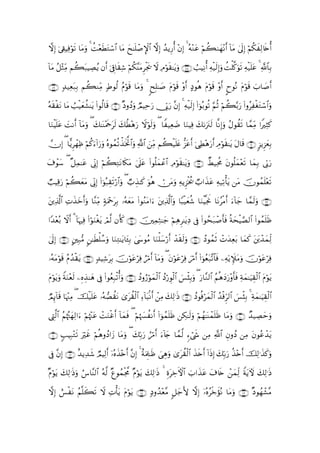 أَنْ أُخَالِفَكُمْ إِلَىٰ مَا أَنْهَاكُمْ عَنْهُ ۚ إِنْ أُرِيدُ إِلَّا الْإِصْلَاحَ مَا اسْتَطَعْتُ ۚ وَمَا تَوْفِيقِي إِلَّا
بِاللَّهِ ۚ عَلَيْهِ تَوَكَّلْتُ وَإِلَيْهِ أُنِيبُ ۝ وَيَا قَوْمِ لَا يَجْرِمَنَّكُمْ شِقَاقِي أَنْ يُصِيبَكُمْ مِثْلُ مَا
أَصَابَ قَوْمَ نُوحٍ أَوْ قَوْمَ هُودٍ أَوْ قَوْمَ صَالِحٍ ۚ وَمَا قَوْمُ لُوطٍ مِنْكُمْ بِبَعِيدٍ ۝
وَاسْتَغْفِرُوا رَبَّكُمْ ثُمَّ تُوبُوا إِلَيْهِ ۚ إِنَّ رَبِّي رَحِيمٌ وَدُودٌ ۝ قَالُوا يَا شُعَيْبُ مَا نَفْقَهُ
كَثِيرًا مِمَّا تَقُولُ وَإِنَّا لَنَرَاكَ فِينَا ضَعِيفًا ۖ وَلَوْلَا رَهْطُكَ لَرَجَمْنَاكَ ۖ وَمَا أَنْتَ عَلَيْنَا
بِعَزِيزٍ ۝ قَالَ يَا قَوْمِ أَرَهْطِي أَعَزُّ عَلَيْكُمْ مِنَ اللَّهِ وَاتَّخَذْتُمُوهُ وَرَاءَكُمْ ظِهْرِيًّا ۖ إِنَّ
رَبِّي بِمَا تَعْمَلُونَ مُحِيطٌ ۝ وَيَا قَوْمِ اعْمَلُوا عَلَىٰ مَكَانَتِكُمْ إِنِّي عَامِلٌ ۖ سَوْفَ
تَعْلَمُونَ مَنْ يَأْتِيهِ عَذَابٌ يُخْزِيهِ وَمَنْ هُوَ كَاذِبٌ ۖ وَارْتَقِبُوا إِنِّي مَعَكُمْ رَقِيبٌ
۝ وَلَمَّا جَاءَ أَمْرُنَا نَجَّيْنَا شُعَيْبًا وَالَّذِينَ آمَنُوا مَعَهُ بِرَحْمَةٍ مِنَّا وَأَخَذَتِ الَّذِينَ
ظَلَمُوا الصَّيْحَةُ فَأَصْبَحُوا فِي دِيَارِهِمْ جَاثِمِينَ ۝ كَأَنْ لَمْ يَغْنَوْا فِيهَا ۗ أَلَا بُعْدًا
لِمَدْيَنَ كَمَا بَعِدَتْ ثَمُودُ ۝ وَلَقَدْ أَرْسَلْنَا مُوسَىٰ بِآيَاتِنَا وَسُلْطَانٍ مُبِينٍ ۝ إِلَىٰ
فِرْعَوْنَ وَمَلَئِهِ فَاتَّبَعُوا أَمْرَ فِرْعَوْنَ ۖ وَمَا أَمْرُ فِرْعَوْنَ بِرَشِيدٍ ۝ يَقْدُمُ قَوْمَهُ
يَوْمَ الْقِيَامَةِ فَأَوْرَدَهُمُ النَّارَ ۖ وَبِئْسَ الْوِرْدُ الْمَوْرُودُ ۝ وَأُتْبِعُوا فِي هَٰذِهِ لَعْنَةً وَيَوْمَ
الْقِيَامَةِ ۚ بِئْسَ الرِّفْدُ الْمَرْفُودُ ۝ ذَٰلِكَ مِنْ أَنْبَاءِ الْقُرَىٰ نَقُصُّهُ عَلَيْكَ ۖ مِنْهَا قَائِمٌ
وَحَصِيدٌ ۝ وَمَا ظَلَمْنَاهُمْ وَلَٰكِنْ ظَلَمُوا أَنْفُسَهُمْ ۖ فَمَا أَغْنَتْ عَنْهُمْ آلِهَتُهُمُ الَّتِي
يَدْعُونَ مِنْ دُونِ اللَّهِ مِنْ شَيْءٍ لَمَّا جَاءَ أَمْرُ رَبِّكَ ۖ وَمَا زَادُوهُمْ غَيْرَ تَتْبِيبٍ ۝
وَكَذَٰلِكَ أَخْذُ رَبِّكَ إِذَا أَخَذَ الْقُرَىٰ وَهِيَ ظَالِمَةٌ ۚ إِنَّ أَخْذَهُ أَلِيمٌ شَدِيدٌ ۝ إِنَّ فِي
ذَٰلِكَ لَآيَةً لِمَنْ خَافَ عَذَابَ الْآخِرَةِ ۚ ذَٰلِكَ يَوْمٌ مَجْمُوعٌ لَهُ النَّاسُ وَذَٰلِكَ يَوْمٌ
مَشْهُودٌ ۝ وَمَا نُؤَخِّرُهُ إِلَّا لِأَجَلٍ مَعْدُودٍ ۝ يَوْمَ يَأْتِ لَا تَكَلَّمُ نَفْسٌ إِلَّا